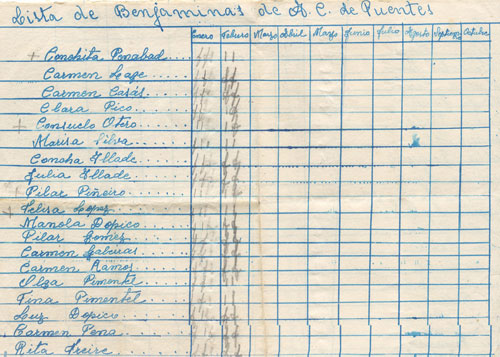 Lista de Benjaminas de A. C. de Puentes
Enero Febrero Marzo Abril Mayo Junio Julio Agosto Septiem Octubre
+ Conchita Penabad
Carmen Lage
Carmen Casás
Clara Pico
+ Consuelo Otero
Marisa Silva
Concha Illade
Julia Illade
Pilar Piñeiro
+ Felisa Lopez
Manola Dopico
Pilar Gomez
Carmen
Carmen Ramos
Pimentel
Tina Pimentel
Luz Dopico
Carmen Pena
Rita Freire